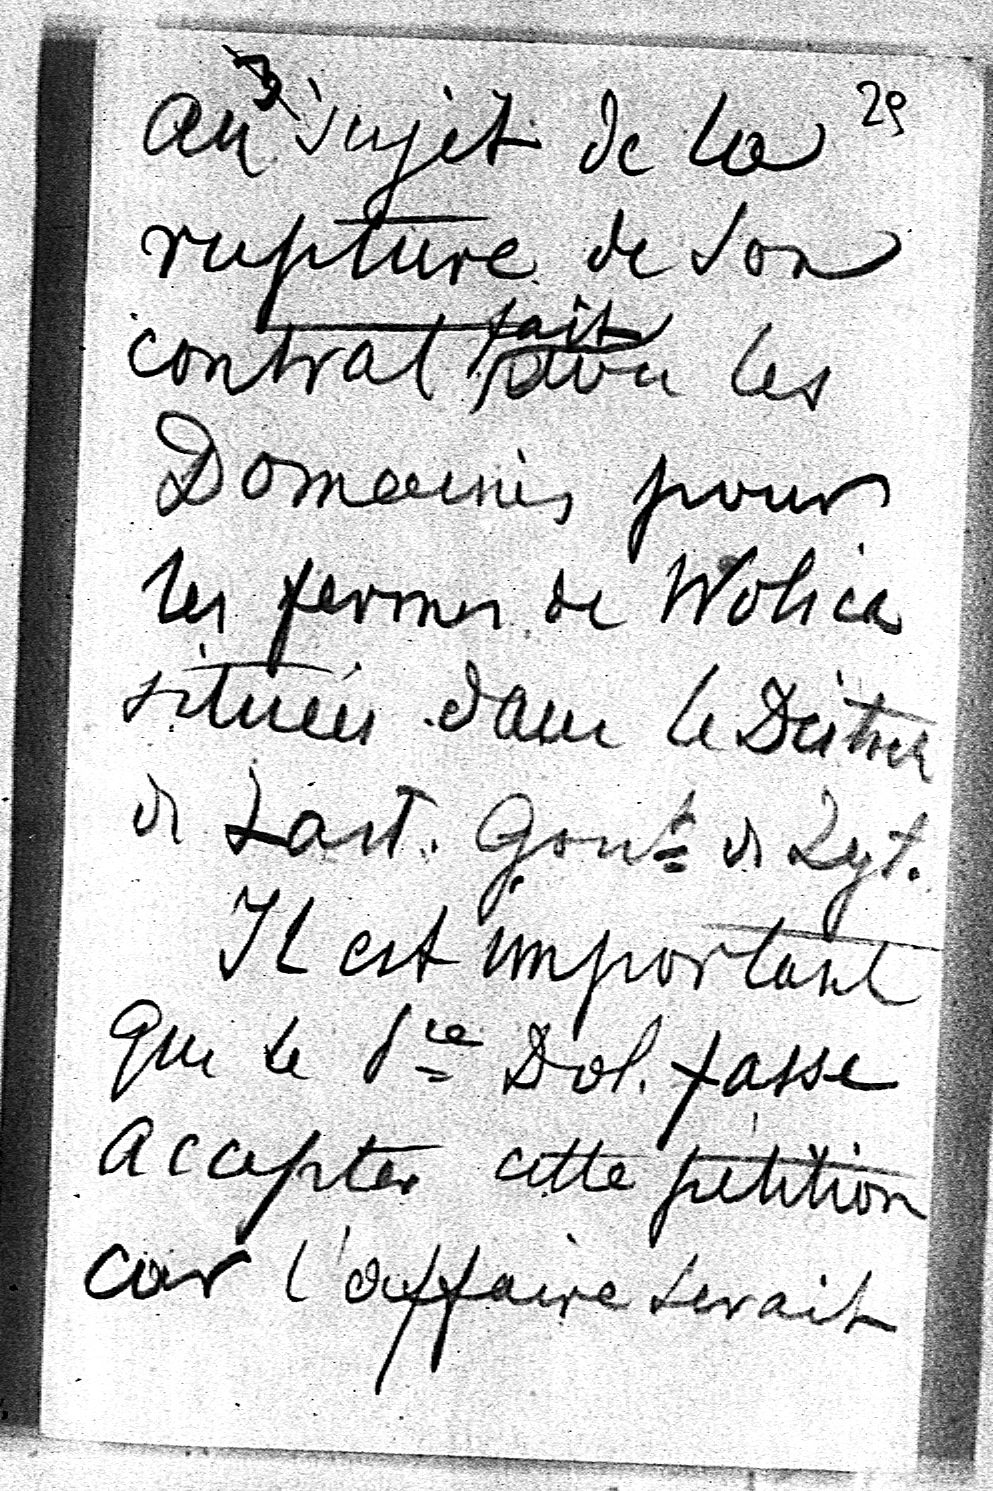 3 29
au sujet de la
rupture de son
contrat fait avec les
Domaines pour
les fermes de Wolica
situées dans le District
de Zast. Gouvt de Zyt.
Il est important
que le Pce Dol. fasse
accepter cette pétition
car l'affaire serait